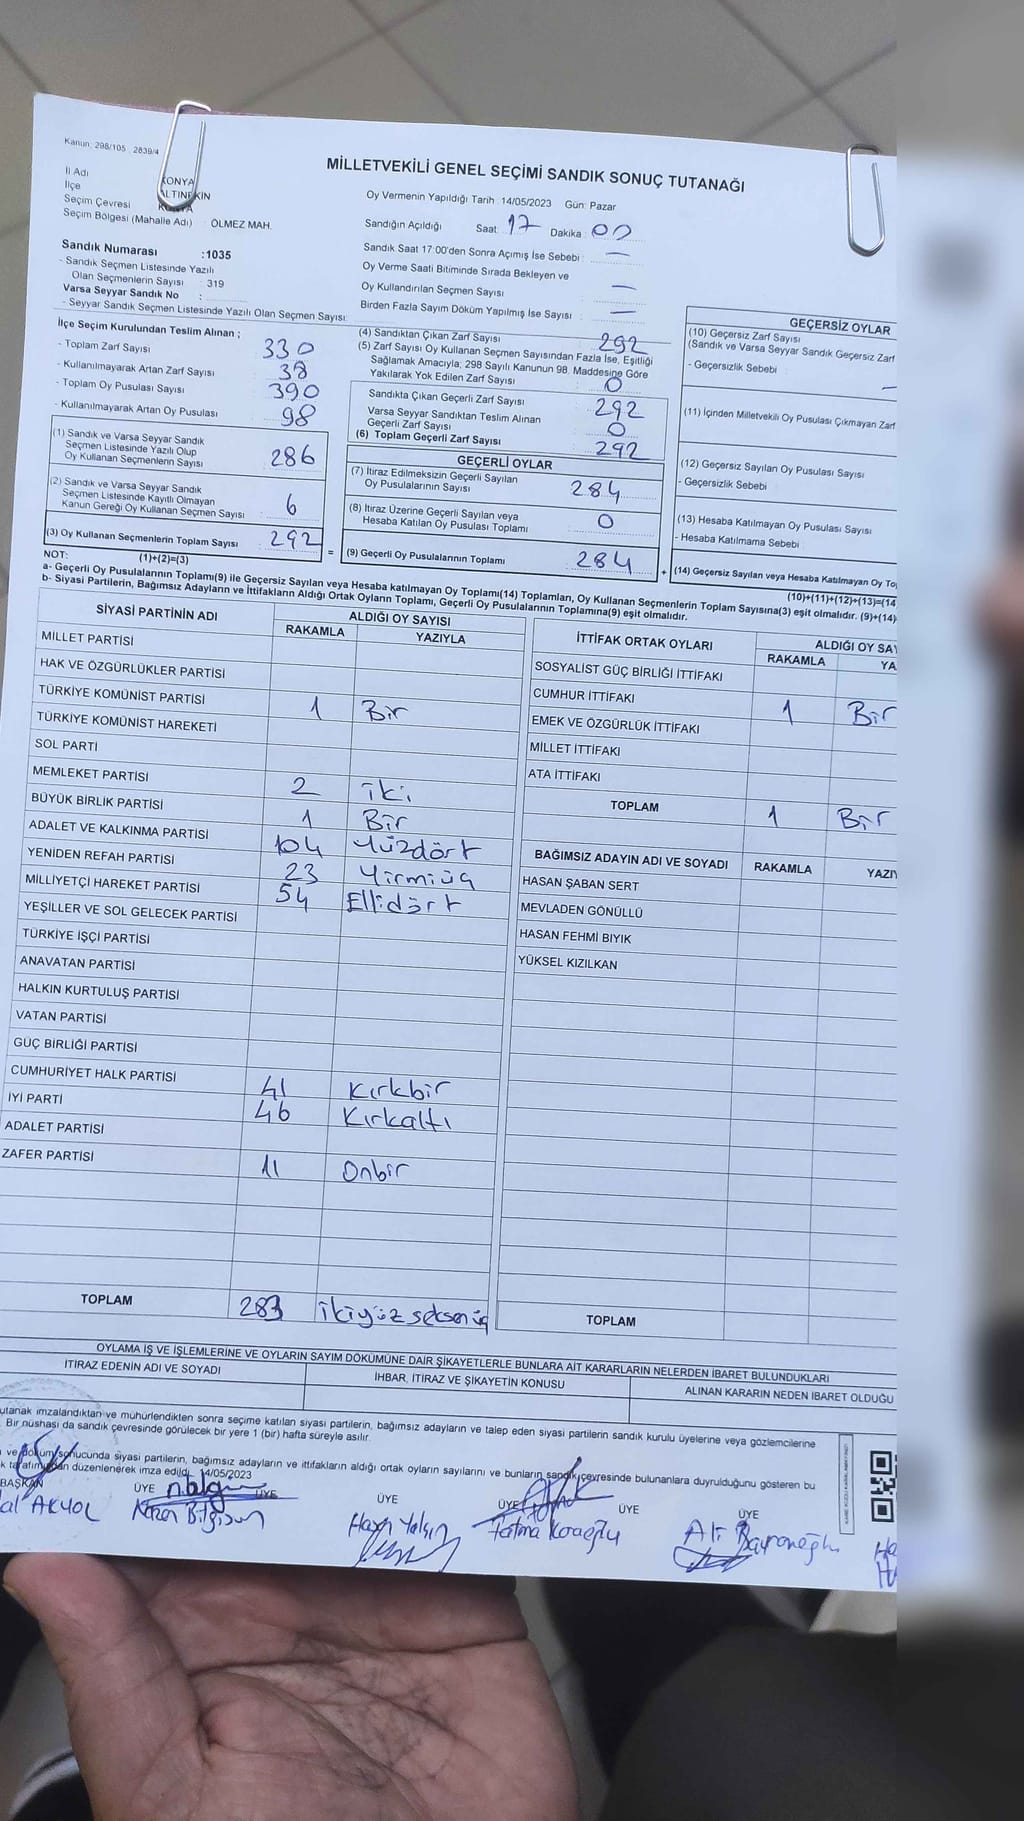 Kanun: 298/105 2839/4
MİLLETVEKİLİ GENEL SEÇİMİ SANDIK SONUÇ TUTANAĞI
İl Adı KONYA
İlçe ALTINEKİN
Seçim Çevresi KONYA
Seçim Bölgesi (Mahalle Adı) : ÖLMEZ MAH.
Sandık Numarası :1035
- Sandık Seçmen Listesinde Yazılı
Olan Seçmenlerin Sayısı : 319
Varsa Seyyar Sandık No :
- Seyyar Sandık Seçmen Listesinde Yazılı Olan Seçmen Sayısı:
Oy Vermenin Yapıldığı Tarih : 14/05/2023 Gün: Pazar
Sandığın Açıldığı Saat 17 Dakika : 00
Sandık Saat 17:00'den Sonra Açımış İse Sebebi : —
Oy Verme Saati Bitiminde Sırada Bekleyen ve
Oy Kullandırılan Seçmen Sayısı —
Birden Fazla Sayım Döküm Yapılmış İse Sayısı : —
İlçe Seçim Kurulundan Teslim Alınan ;
- Toplam Zarf Sayısı 330
- Kullanılmayarak Artan Zarf Sayısı 38
- Toplam Oy Pusulası Sayısı 390
- Kullanılmayarak Artan Oy Pusulası 98
(1) Sandık ve Varsa Seyyar Sandık
Seçmen Listesinde Yazılı Olup
Oy Kullanan Seçmenlerin Sayısı 286
(2) Sandık ve Varsa Seyyar Sandık
Seçmen Listesinde Kayıtlı Olmayan
Kanun Gereği Oy Kullanan Seçmen Sayısı 6
(3) Oy Kullanan Seçmenlerin Toplam Sayısı 292
(4) Sandıktan Çıkan Zarf Sayısı 292
(5) Zarf Sayısı Oy Kullanan Seçmen Sayısından Fazla İse, Eşitliği
Sağlamak Amacıyla, 298 Sayılı Kanunun 98. Maddesine Göre
Yakılarak Yok Edilen Zarf Sayısı 0
Sandıkta Çıkan Geçerli Zarf Sayısı 292
Varsa Seyyar Sandıktan Teslim Alınan
Geçerli Zarf Sayısı 0
(6) Toplam Geçerli Zarf Sayısı 292
GEÇERLİ OYLAR
(7) İtiraz Edilmeksizin Geçerli Sayılan
Oy Pusulalarının Sayısı 284
(8) İtiraz Üzerine Geçerli Sayılan veya
Hesaba Katılan Oy Pusulası Toplamı 0
= (9) Geçerli Oy Pusulalarının Toplamı 284 +
GEÇERSİZ OYLAR
(10) Geçersiz Zarf Sayısı
(Sandık ve Varsa Seyyar Sandık Geçersiz Zarf
- Geçersizlik Sebebi : —
(11) İçinden Milletvekili Oy Pusulası Çıkmayan Zarf
(12) Geçersiz Sayılan Oy Pusulası Sayısı
- Geçersizlik Sebebi
(13) Hesaba Katılmayan Oy Pusulası Sayısı
- Hesaba Katılmama Sebebi
(14) Geçersiz Sayılan veya Hesaba Katılmayan Oy To
(10)+(11)+(12)+(13)=(14
NOT: (1)+(2)=(3)
a- Geçerli Oy Pusulalarının Toplamı(9) ile Geçersiz Sayılan veya Hesaba katılmayan Oy Toplamı(14) Toplamları, Oy Kullanan Seçmenlerin Toplam Sayısına(3) eşit olmalıdır. (9)+(14)
b- Siyasi Partilerin, Bağımsız Adayların ve İttifakların Aldığı Ortak Oyların Toplamı, Geçerli Oy Pusulalarının Toplamına(9) eşit olmalıdır.
SİYASİ PARTİNİN ADI ALDIĞI OY SAYISI
RAKAMLA YAZIYLA
MİLLET PARTİSİ
HAK VE ÖZGÜRLÜKLER PARTİSİ
TÜRKİYE KOMÜNİST PARTİSİ 1 Bir
TÜRKİYE KOMÜNİST HAREKETİ
SOL PARTİ
MEMLEKET PARTİSİ 2 iki
BÜYÜK BİRLİK PARTİSİ 1 Bir
ADALET VE KALKINMA PARTİSİ 104 Yüzdört
YENİDEN REFAH PARTİSİ 23 Yirmiüç
MİLLİYETÇİ HAREKET PARTİSİ 54 Ellidört
YEŞİLLER VE SOL GELECEK PARTİSİ
TÜRKİYE İŞÇİ PARTİSİ
ANAVATAN PARTİSİ
HALKIN KURTULUŞ PARTİSİ
VATAN PARTİSİ
GÜÇ BİRLİĞİ PARTİSİ
CUMHURİYET HALK PARTİSİ 41 Kırkbir
İYİ PARTİ 46 Kırkaltı
ADALET PARTİSİ
ZAFER PARTİSİ 11 Onbir
TOPLAM 283 ikiyüz seksenüç
İTTİFAK ORTAK OYLARI ALDIĞI OY SAY
RAKAMLA YA
SOSYALİST GÜÇ BİRLİĞİ İTTİFAKI
CUMHUR İTTİFAKI 1 Bir
EMEK VE ÖZGÜRLÜK İTTİFAKI
MİLLET İTTİFAKI
ATA İTTİFAKI
TOPLAM 1 Bir
BAĞIMSIZ ADAYIN ADI VE SOYADI RAKAMLA YAZIY
HASAN ŞABAN SERT
MEVLADEN GÖNÜLLÜ
HASAN FEHMİ BIYIK
YÜKSEL KIZILKAN
TOPLAM
OYLAMA İŞ VE İŞLEMLERİNE VE OYLARIN SAYIM DÖKÜMÜNE DAİR ŞİKAYETLERLE BUNLARA AİT KARARLARIN NELERDEN İBARET BULUNDUKLARI
İTİRAZ EDENİN ADI VE SOYADI İHBAR, İTİRAZ VE ŞİKAYETİN KONUSU ALINAN KARARIN NEDEN İBARET OLDUĞU
utanak imzalandıktan ve mühürlendikten sonra seçime katılan siyasi partilerin, bağımsız adayların ve talep eden siyasi partilerin sandık kurulu üyelerine veya gözlemcilerine
Bir nüshası da sandık çevresinde görülecek bir yere 1 (bir) hafta süreyle asılır.
ve döküm sonucunda siyasi partilerin, bağımsız adayların ve ittifakların aldığı ortak oyların sayılarını ve bunların sandık çevresinde bulunanlara duyrulduğunu gösteren bu
düzenlenerek imza edildi. 14/05/2023
BAŞKAN ÜYE ÜYE ÜYE ÜYE ÜYE ÜYE
AKYOL n.bilgin Yalçın Fatma Karaoğlu Ali Bayramoğlu